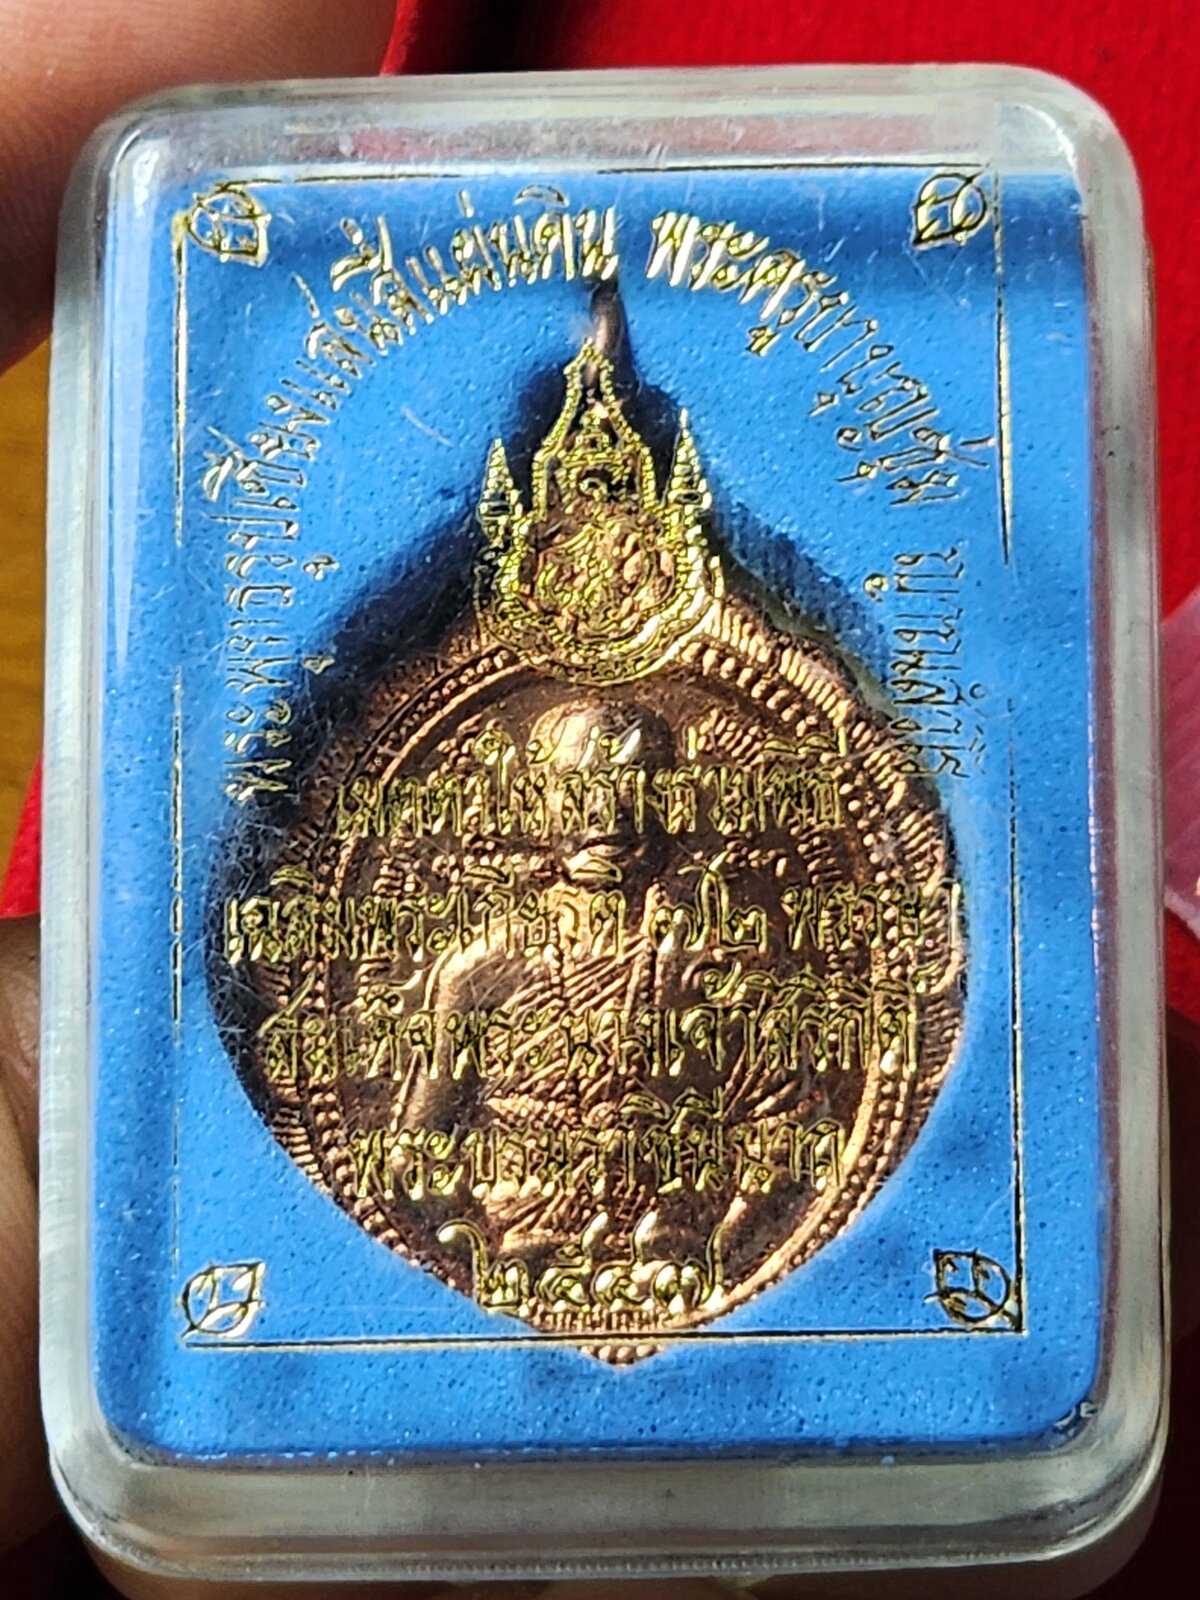 พระพุทธรูปเชียงแสนสี่แผ่นดิน พระครูบาบุญชุ่ม ญาณสํวโร
เมตตาให้สร้างร่วมพิธี
เฉลิมพระเกียรติ ๗๒ พรรษา
สมเด็จพระนางเจ้าสิริกิติ์
พระบรมราชินีนาถ
๒๕๔๗